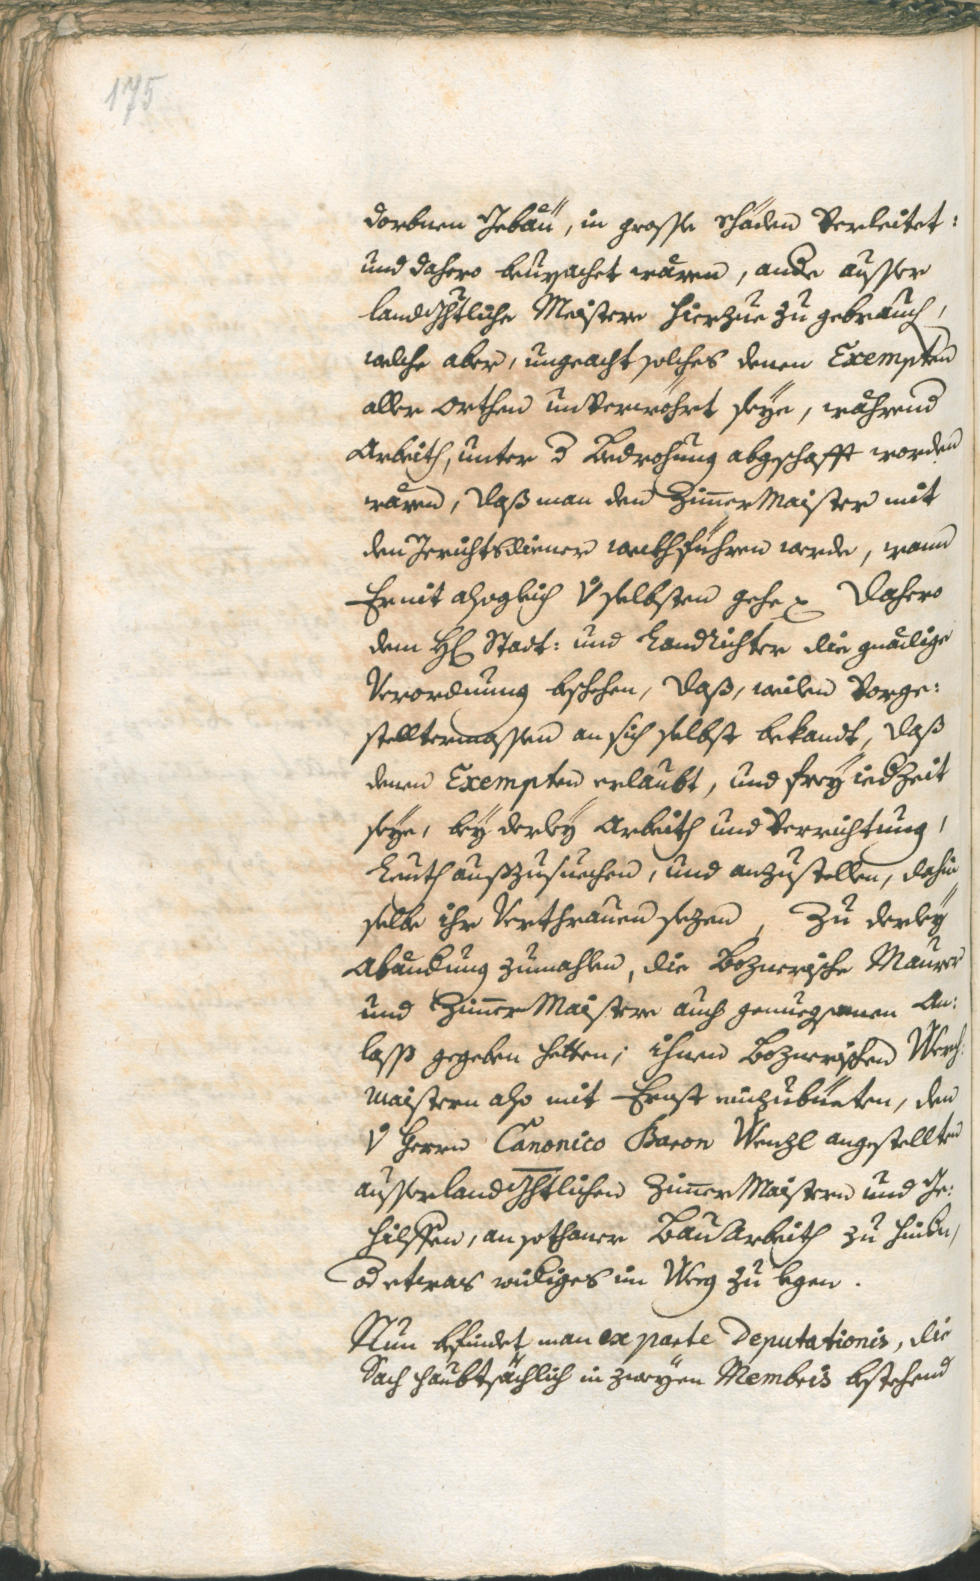 175
dorbnen Gebäu, in grosse Schäden Verleitet:
und dahero beursachet wären, and(e)re ausser
landgrichtliche Maistere hierzue zu gebrauch(en),
welche aber, ungeacht solches denen Exempten
aller Orthen unVerwöhrt seye, während(er)
Arbeith, unter d(er) Bedrohung abgeschafft worden
wären, daß man den ZimmerMaister mit
den Gerichtsdiener wekhführen werde, wann
Er nit alsogleich v(on) selbsten gehe dahero
dem H(errn) Stadt: und LandRichter die gnädige
Verordnung beschehen, daß, weilen Vorge:
stelltermassen an sich selbst bekandt, daß
denen Exempten erlaubt, und frey iedZeit
seye, bey derley Arbeith und Verrichtung,
Leuth außzusuechen, und anzustellen, dahin
selbe ihr Verthrauen sezen, Zu derley
Abändung zumahlen, die Boznerische Maurer
und ZimmerMaistere auch genuegsamen An:
lass gegeben hetten; ihnen Boznerischen Werch:
maistern also mit Ernst einzubüeten, den
v(on) Herrn Canonico Baron Wenzl angestellten
ausserlandgrichtlichen ZimmerMaistern und Ge:
hilffen, an sothaner BauArbeith zu hind(er)n,
od(er) etwas widriges im Weeg zu legen.
Nun befindet man ex parte Deputationis, die
Sach haubtsächlich in zweyen Membris bestehend